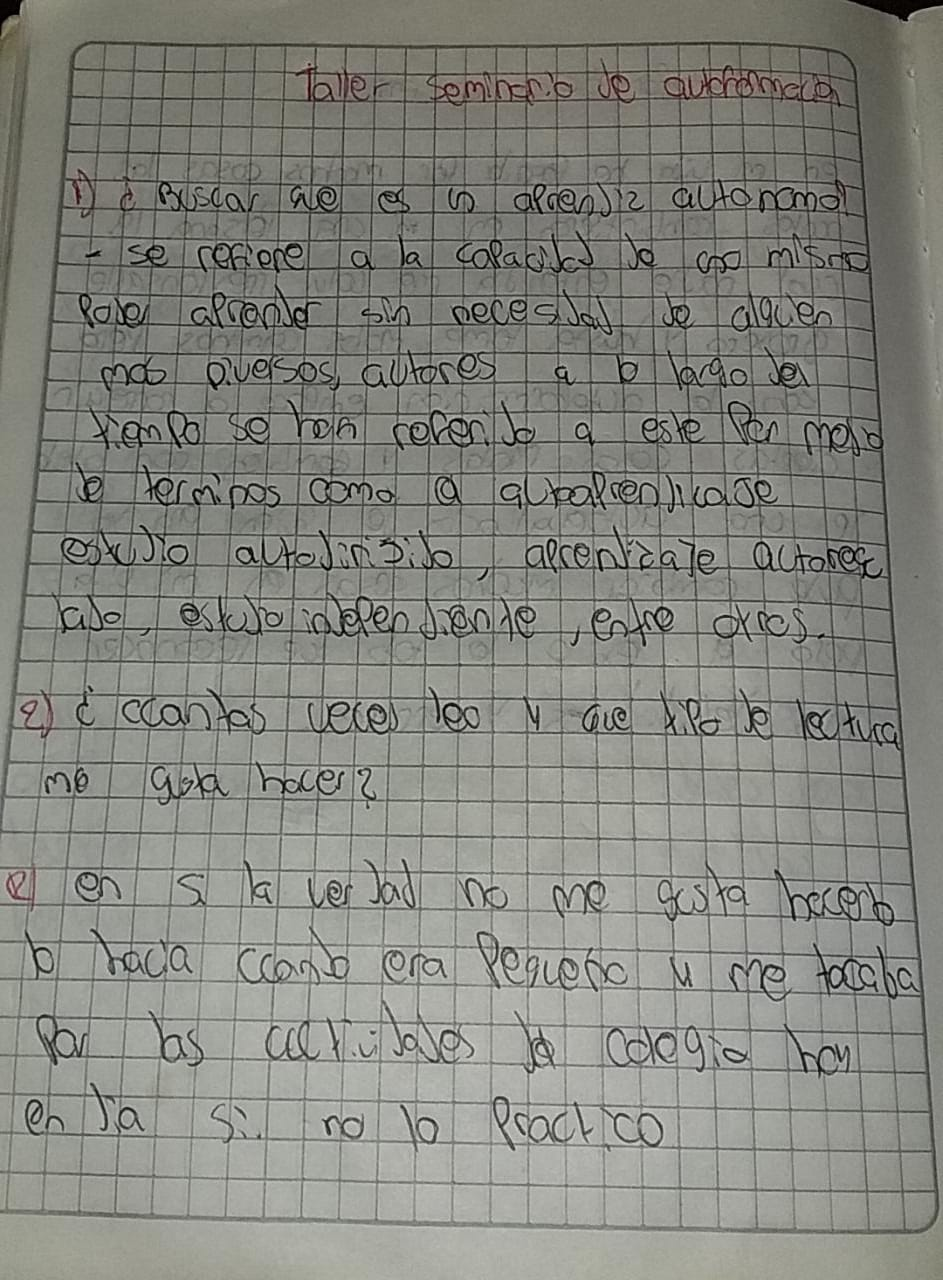 Taller seminario de
1) ¿ Buscar que es un aprendiz autonomo
- se refiere a la capacidad de uno mismo
Poder aprender sin necesidad de alguien
mas Diversos, autores a lo largo del
tiempo se han referido a este Por medio
de terminos como a
estudio autodirigido, aprendizaje
lado, estudio independiente, entre otros.
2) ¿ cuantas veces leo y que tipo de lectura
me gusta hacer?
en si la verdad no me gusta hacerlo
lo hacia cuando era Pequeño y me tocaba
Por las actividades de colegio hoy
en dia si. no lo Practico